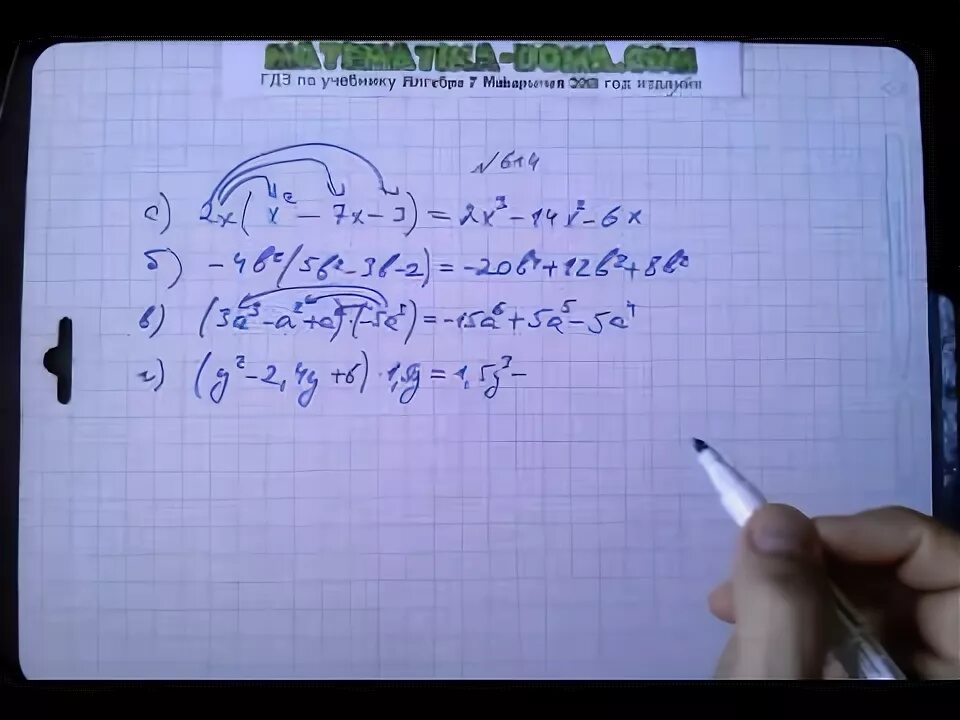 MATEMATIKA-DOMA.COM
ГДЗ по учебнику Алгебра 7 Макарычев год издания
№ 614
а) 2x(x² − 7x − 3) = 2x³ − 14x² − 6x
б) −4b²(5b² − 3b − 2) = −20b⁴ + 12b³ + 8b²
в) (3a³ − a² + a)·(−5a³) = −15a⁶ + 5a⁵ − 5a⁴
г) (y² − 2,4y + 6)·1,5y = 1,5y³ −